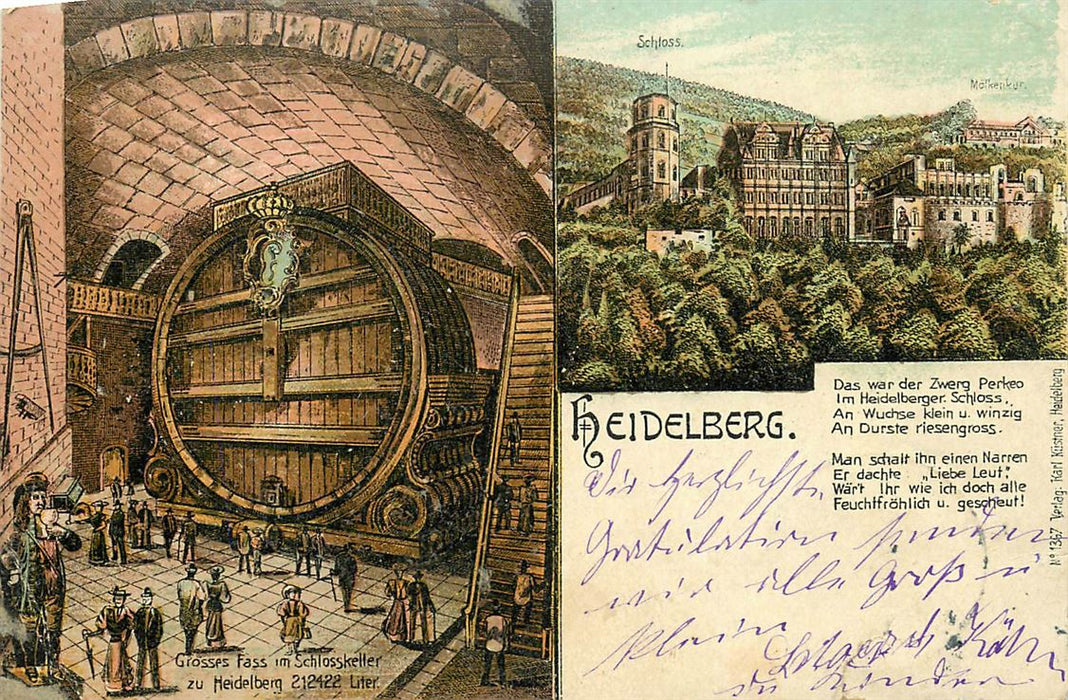 Schloss.
Molkenkur.
Grosses Fass im Schlosskeller
zu Heidelberg 212422 Liter.
HEIDELBERG.
Das war der Zwerg Perkeo
Im Heidelberger Schloss,
An Wuchse klein u. winzig
An Durste riesengross.
Man schalt ihn einen Narren
Er dachte „Liebe Leut:"
Wär't Ihr wie ich doch alle
Feuchtfröhlich u. gescheut!
No 1367 Verlag: Karl Küstner, Heidelberg
Die herzlichste
Gratulation senden
wir alle Groß u
klein